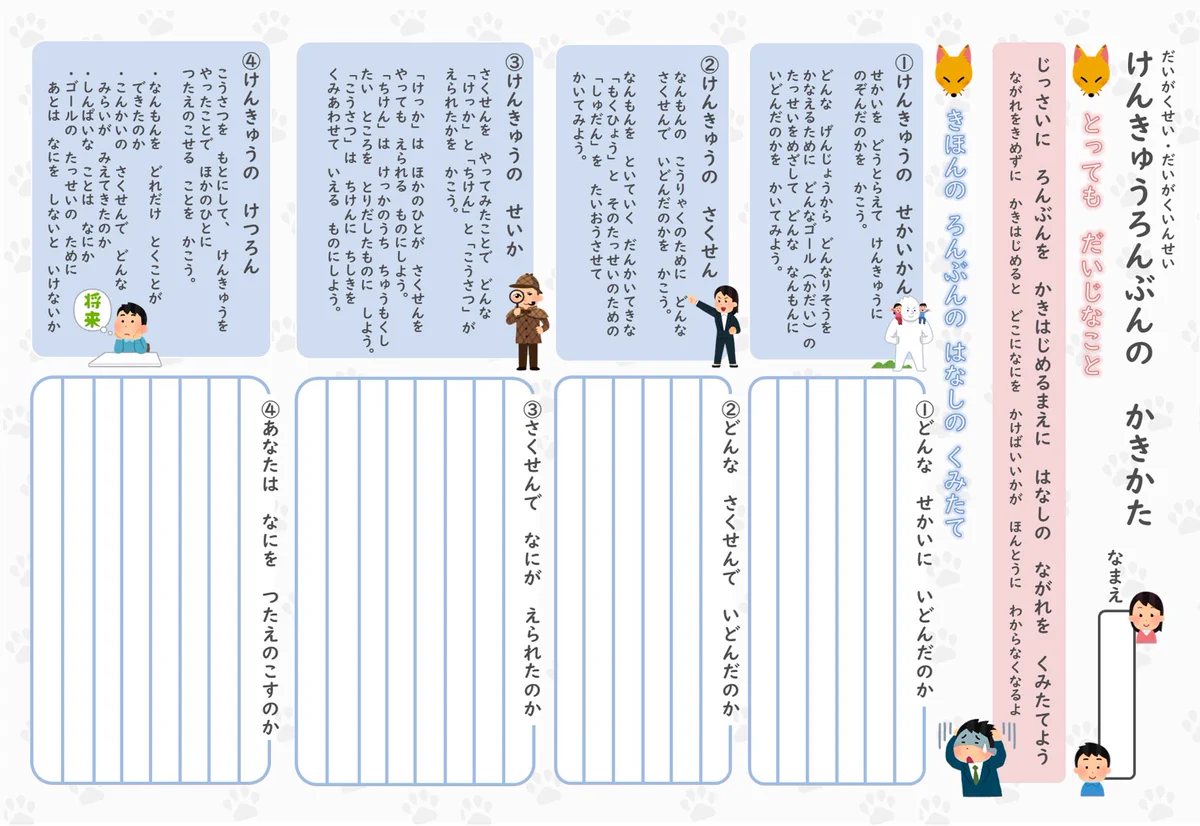 だいがくせい・だいがくいんせい
けんきゅうろんぶんの　かきかた
なまえ
とっても　だいじなこと
じっさいに　ろんぶんを　かきはじめるまえに　はなしの　ながれを　くみたてよう
ながれをきめずに　かきはじめると　どこになにを　かけばいいかが　ほんとうに　わからなくなるよ
きほんの　ろんぶんの　はなしの　くみたて
①けんきゅうの　せかいかん
せかいを　どうとらえて　けんきゅうに
のぞんだのかを　かこう。
どんな　げんじょうから　どんなりそうを
かなえるために　どんなゴール（かだい）の
たっせいをめざして　どんな　なんもんに
いどんだのかを　かいてみよう。
②けんきゅうの　さくせん
なんもんの　こうりゃくのために　どんな
さくせんで　いどんだのかを　かこう。
なんもんを　といていく　だんかいてきな
「もくひょう」と　そのたっせいのための
「しゅだん」を　たいおうさせて
かいてみよう。
③けんきゅうの　せいか
さくせんを　やってみたことで　どんな
「けっか」と「ちけん」と「こうさつ」が
えられたかを　かこう。
「けっか」は　ほかのひとが　さくせんを
やっても　えられる　ものにしよう。
「ちけん」は　けっかのうち　ちゅうもくし
たい　ところを　とりだしたものに　しよう。
「こうさつ」は　ちけんに　ちしきを
くみあわせて　いえる　ものにしよう。
④けんきゅうの　けつろん
こうさつを　もとにして、　けんきゅうを
やったことで　ほかのひとに
つたえのこせる　ことを　かこう。
・なんもんを　どれだけ　とくことが
できたのか
・こんかいの　さくせんで　どんな
みらいが　みえてきたのか
・しんぱいな　ことは　なにか
・ゴールの　たっせいの　ために
あとは　なにを　しないと　いけないか
将来
①どんな　せかいに　いどんだのか
②どんな　さくせんで　いどんだのか
③さくせんで　なにが　えられたのか
④あなたは　なにを　つたえのこすのか